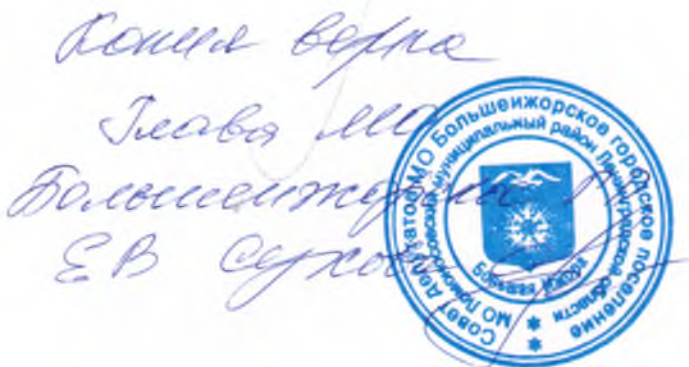 Копия верна
Глава МО
Большеижорское ГП
ЕВ Сухова
Совет депутатов МО Большеижорское городское поселение
МО Ломоносовский муниципальный район Ленинградской области
Большая Ижора